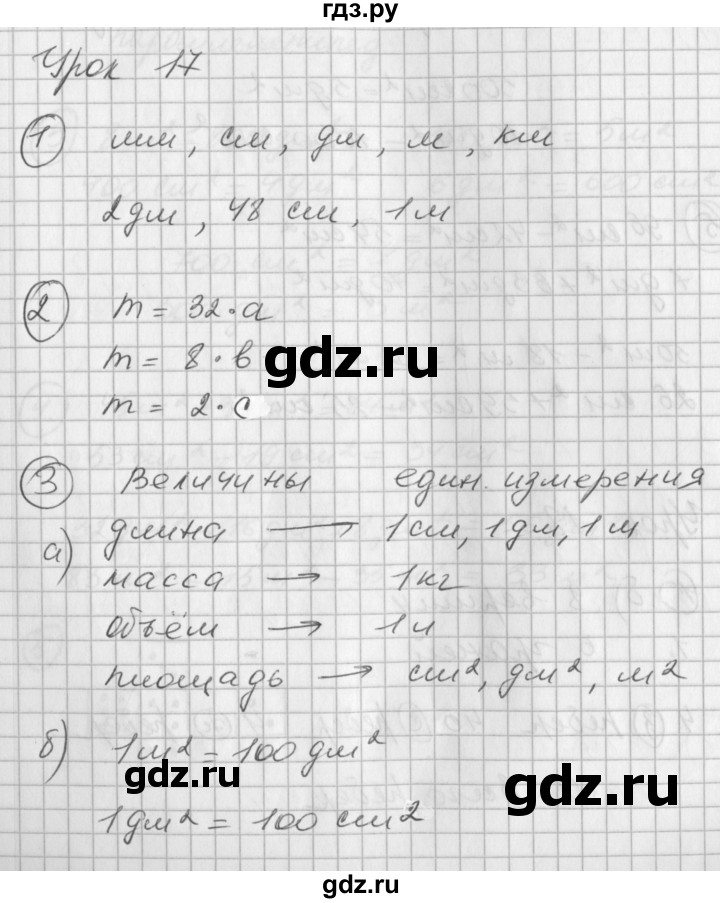 гдз.ру
Урок 17
1 мм, см, дм, м, км
2дм, 48 см, 1м
2 m = 32·a
m = 8·b
m = 2·c
gdz.ru
3 Величины един. измерения
а) длина → 1см, 1дм, 1м
масса → 1кг
объём → 1л
площадь → см², дм², м²
б) 1м² = 100 дм²
gdz.ru
gdz.ru
1дм² = 100 см²
gdz.ru